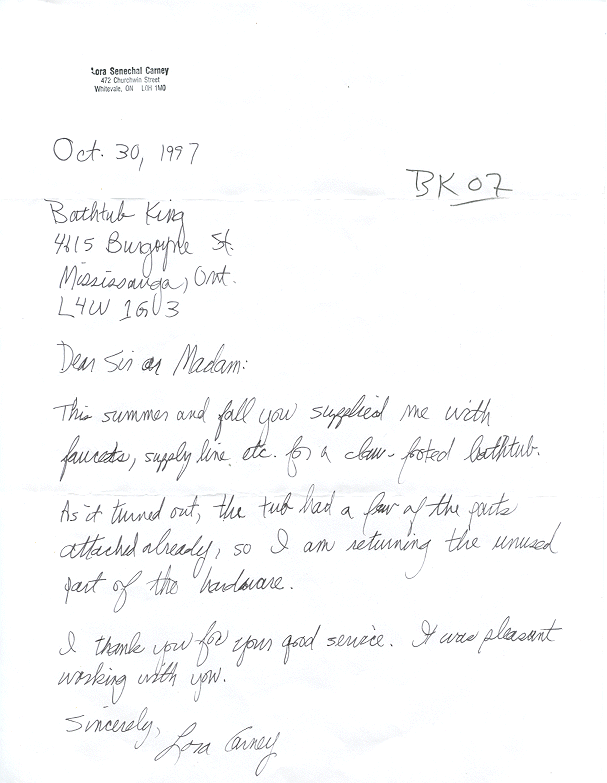 Lora Senechal Carney
472 Churchwin Street
Whitevale, ON L0H 1M0
Oct. 30, 1997
BK 07
Bathtub King
4615 Burgoyne St.
Mississauga, Ont.
L4W 1G3
Dear Sir or Madam:
This summer and fall you supplied me with
faucets, supply line, etc. for a claw-footed bathtub.
As it turned out, the tub had a few of the parts
attached already, so I am returning the unused
part of the hardware.
I thank you for your good service. It was pleasant
working with you.
Sincerely,
Lora Carney